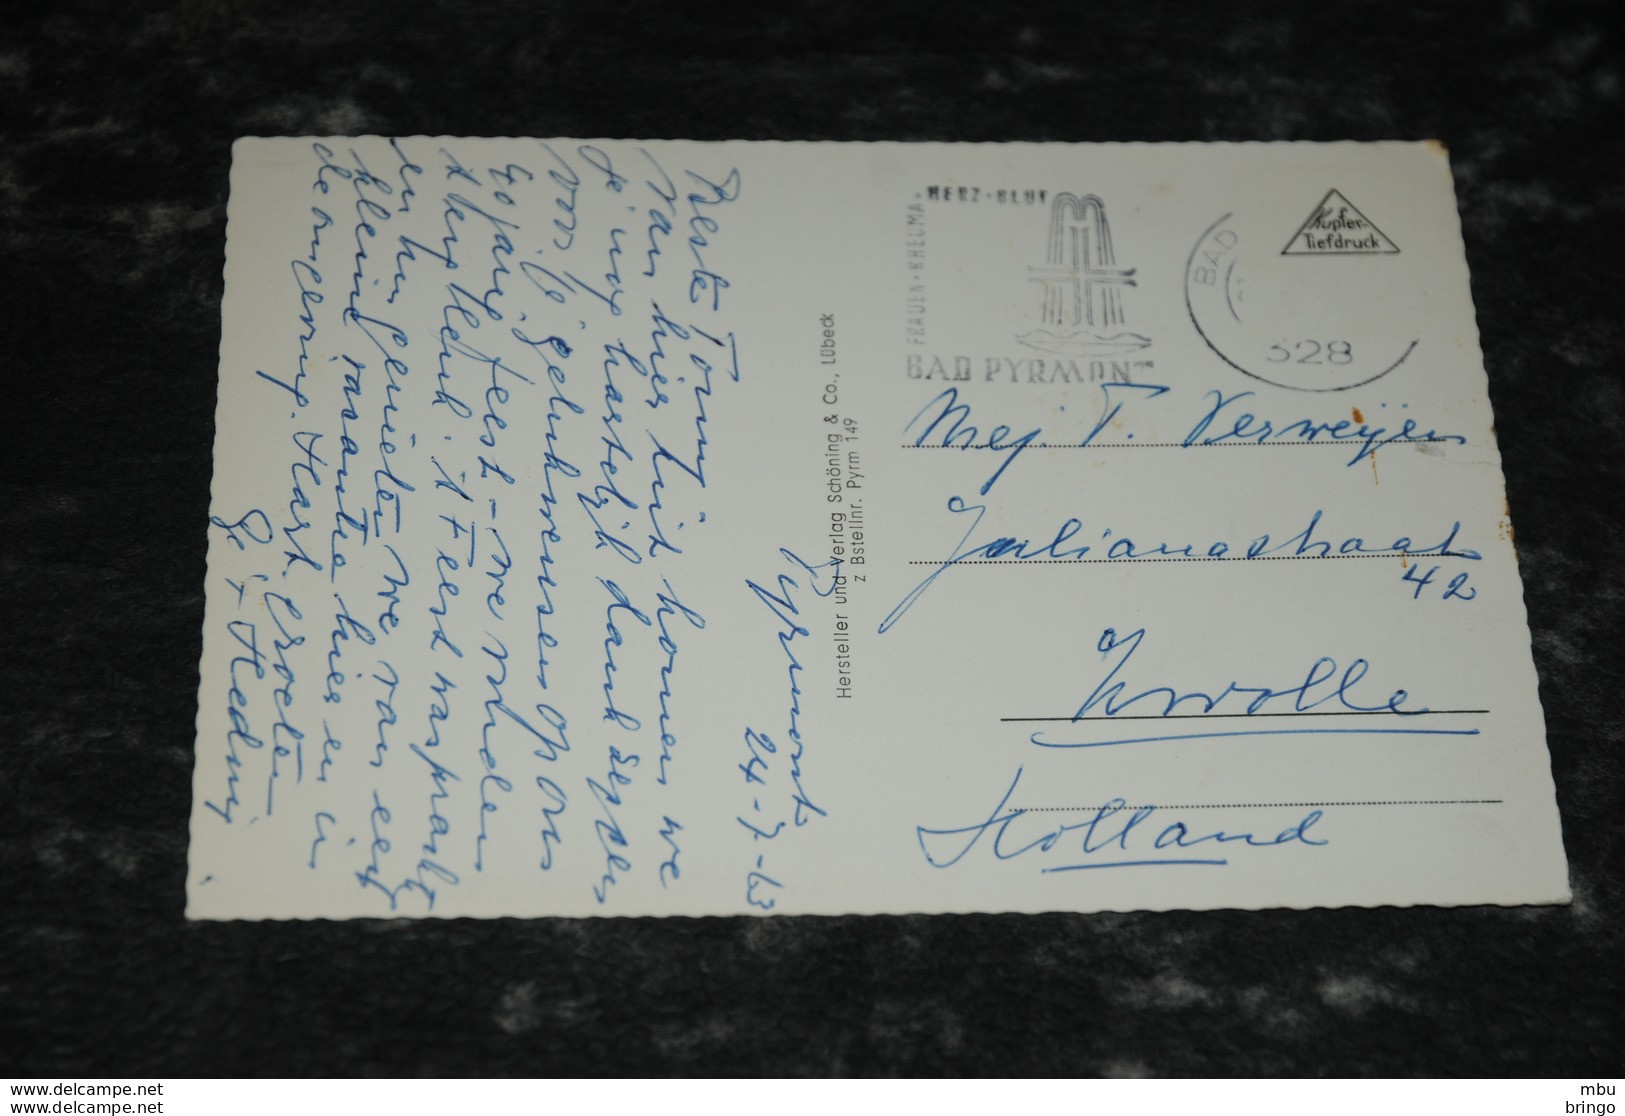 Pyrmont
24-7-63
Beste Tonny,
Van hier uit komen we
je nog hartelijk dank zeggen
voor je gelukwensen op ons
40 jarig feest - we vonden
't erg leuk. 't Feest was prachtig
en nu genieten we van een
kleine vacantie hier en in
de omgeving. Hart. Groeten
Ge + Hedwig
Hersteller und Verlag Schöning & Co., Lübeck
z Bstellnr. Pyrm 149
HERZ · BLUT
FRAUEN · RHEUMA ·
BAD PYRMONT
BAD
328
Kupfer-
Tiefdruck
Mej. T. Verweijen
Julianastraat
42
Zwolle
Holland
www.delcampe.net
www.delcampe.net
mbu
bringo